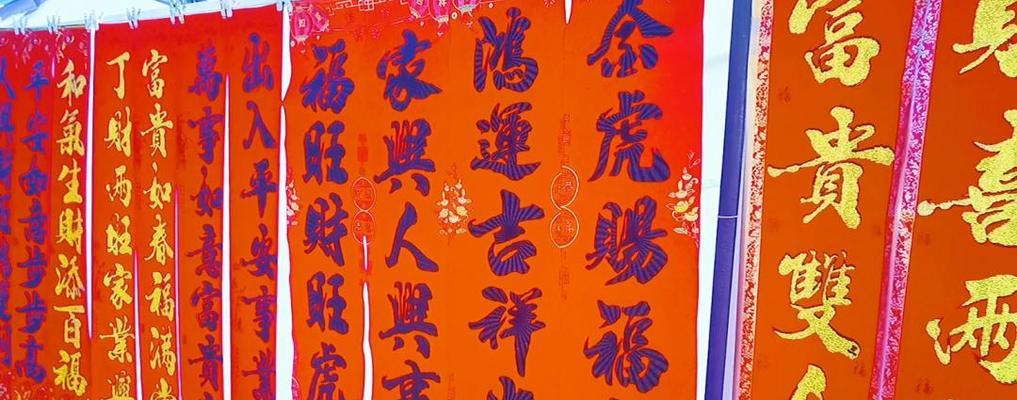 喜兩
富貴雙
虎賜福
鴻運吉祥
家興人興事
福旺財旺虎
出入平安事業
萬事如意富貴
富貴如春福滿
丁財兩旺家業興
和氣生財添百福
平安如意步步高